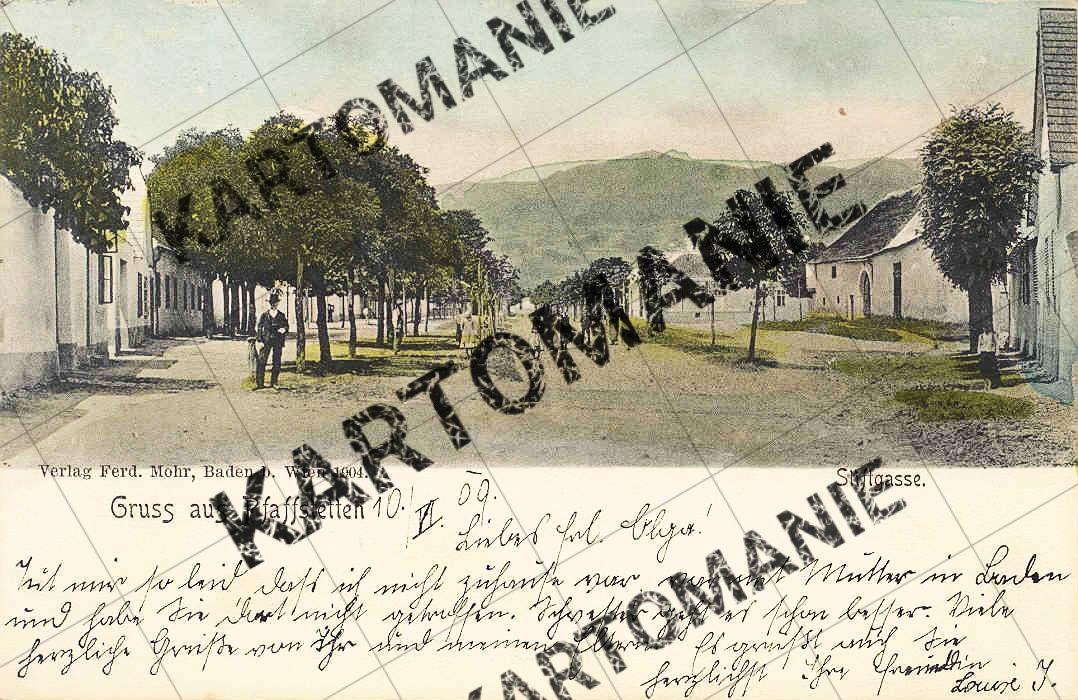 KARTOMANIE
KARTOMANIE
KARTOMANIE
KARTOMANIE
Verlag Ferd. Mohr, Baden b. Wien 1904.
Stiftgasse.
Gruss aus Pfaffstetten 10./VI. 09.
Liebes Frl. Olga!
Tut mir so leid dass ich nicht zuhause war war mit Mutter in Baden
und habe Sie dort nicht getroffen. Schwester geht es schon besser. Viele
herzliche Grüße von Ihr und meinen Eltern. Es grüßt auch Sie
herzlichst Ihre Freundin
Louise J.